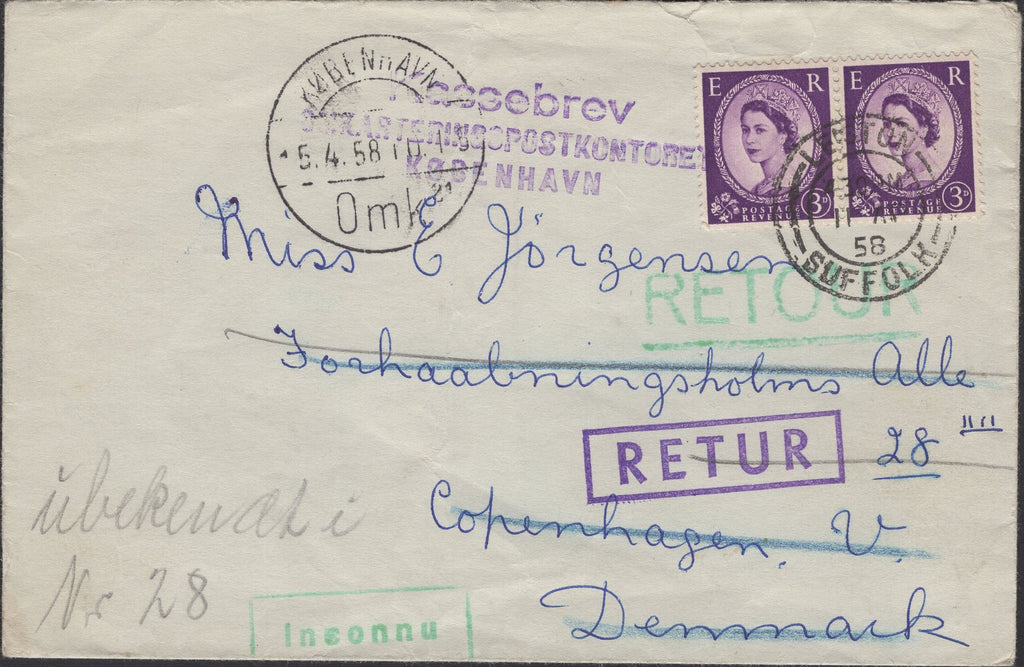 KØBENHAVN
5.4.58
Omk
Massebrev
OMKARTERINGSPOSTKONTORET
KØBENHAVN
E R
POSTAGE REVENUE 3D
E R
POSTAGE REVENUE 3D
58
SUFFOLK
Miss E Jörgensen
RETOUR
Forhaabningsholms Alle
28 ""
RETUR
Copenhagen. V.
Denmark
übekendt i
Nr 28
Inconnu